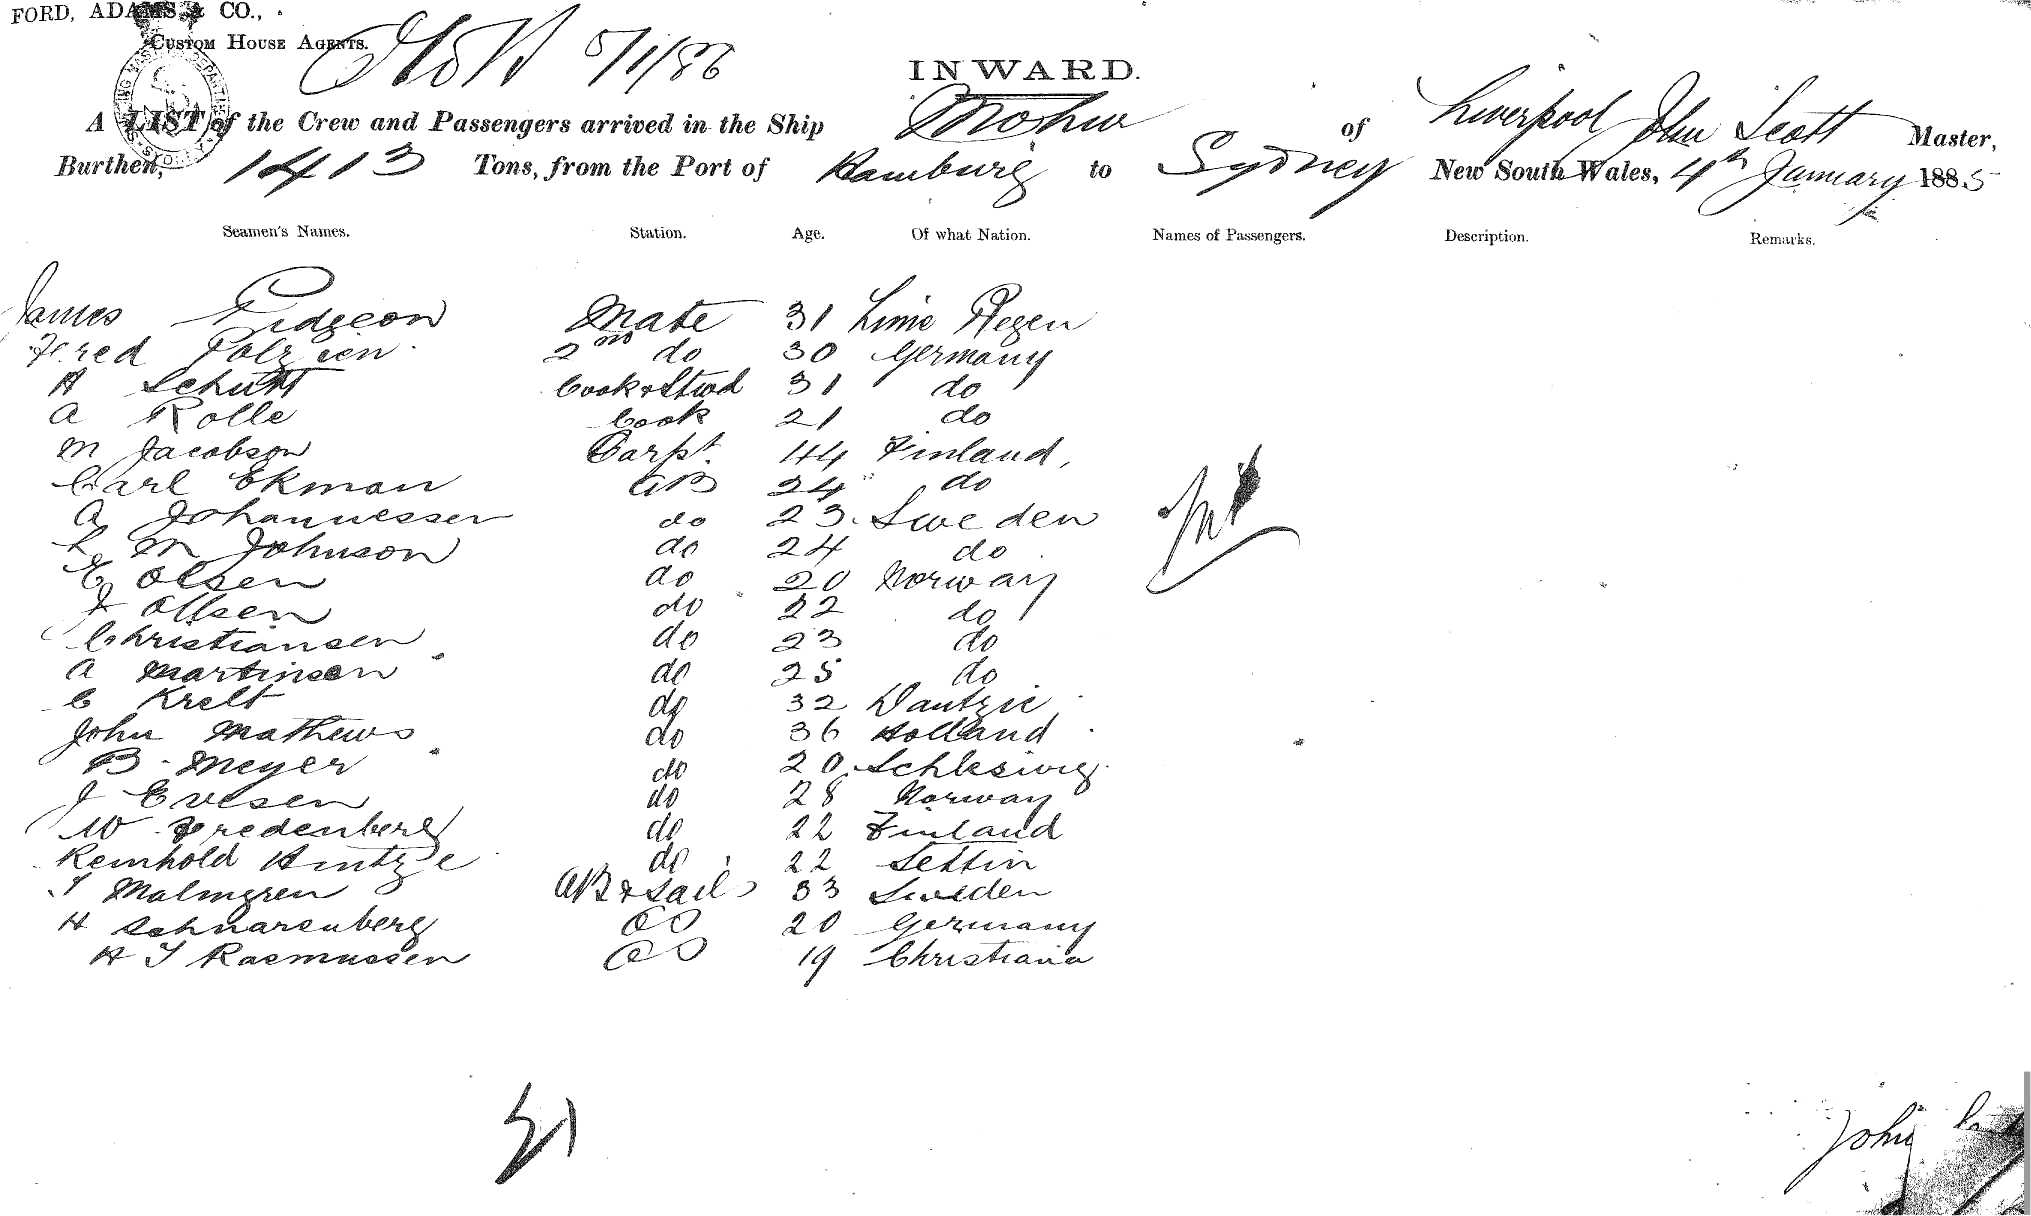 FORD, ADAMS & CO.,
CUSTOM HOUSE AGENTS.
5/1/86
INWARD.
A LIST of the Crew and Passengers arrived in the Ship Moshur of Liverpool John Scott Master,
Burthen, 1413 Tons, from the Port of Hamburg to Sydney New South Wales, 4th January 1885
Seamen's Names. Station. Age. Of what Nation. Names of Passengers. Description. Remarks.
James Pidgeon Mate 31 Lime Regen
Fred Polzien 2nd do 30 Germany
H Schutt Cook & Stwd 31 do
A Rolle Cook 21 do
M Jacobson Carpt. 44 Finland,
Carl Ekman AB 24 do
A Johannessen do 23 Sweden
L M Johnson do 24 do
E Olsen do 20 Norway
J Ollsen do 22 do
Christiansen do 23 do
A Martinsen do 25 do
C Krelt do 32 Dantzic
John Mathews do 36 Holland
B Meyer do 20 Schleswig
J Evesen do 28 Norway
W Fredenberg do 22 Finland
Reinhold Hintze do 22 Settin
T Malmgren AB & Sails 33 Sweden
H Schnarenberg OS 20 Germany
H J Rasmussen OS 19 Christiana
21
John